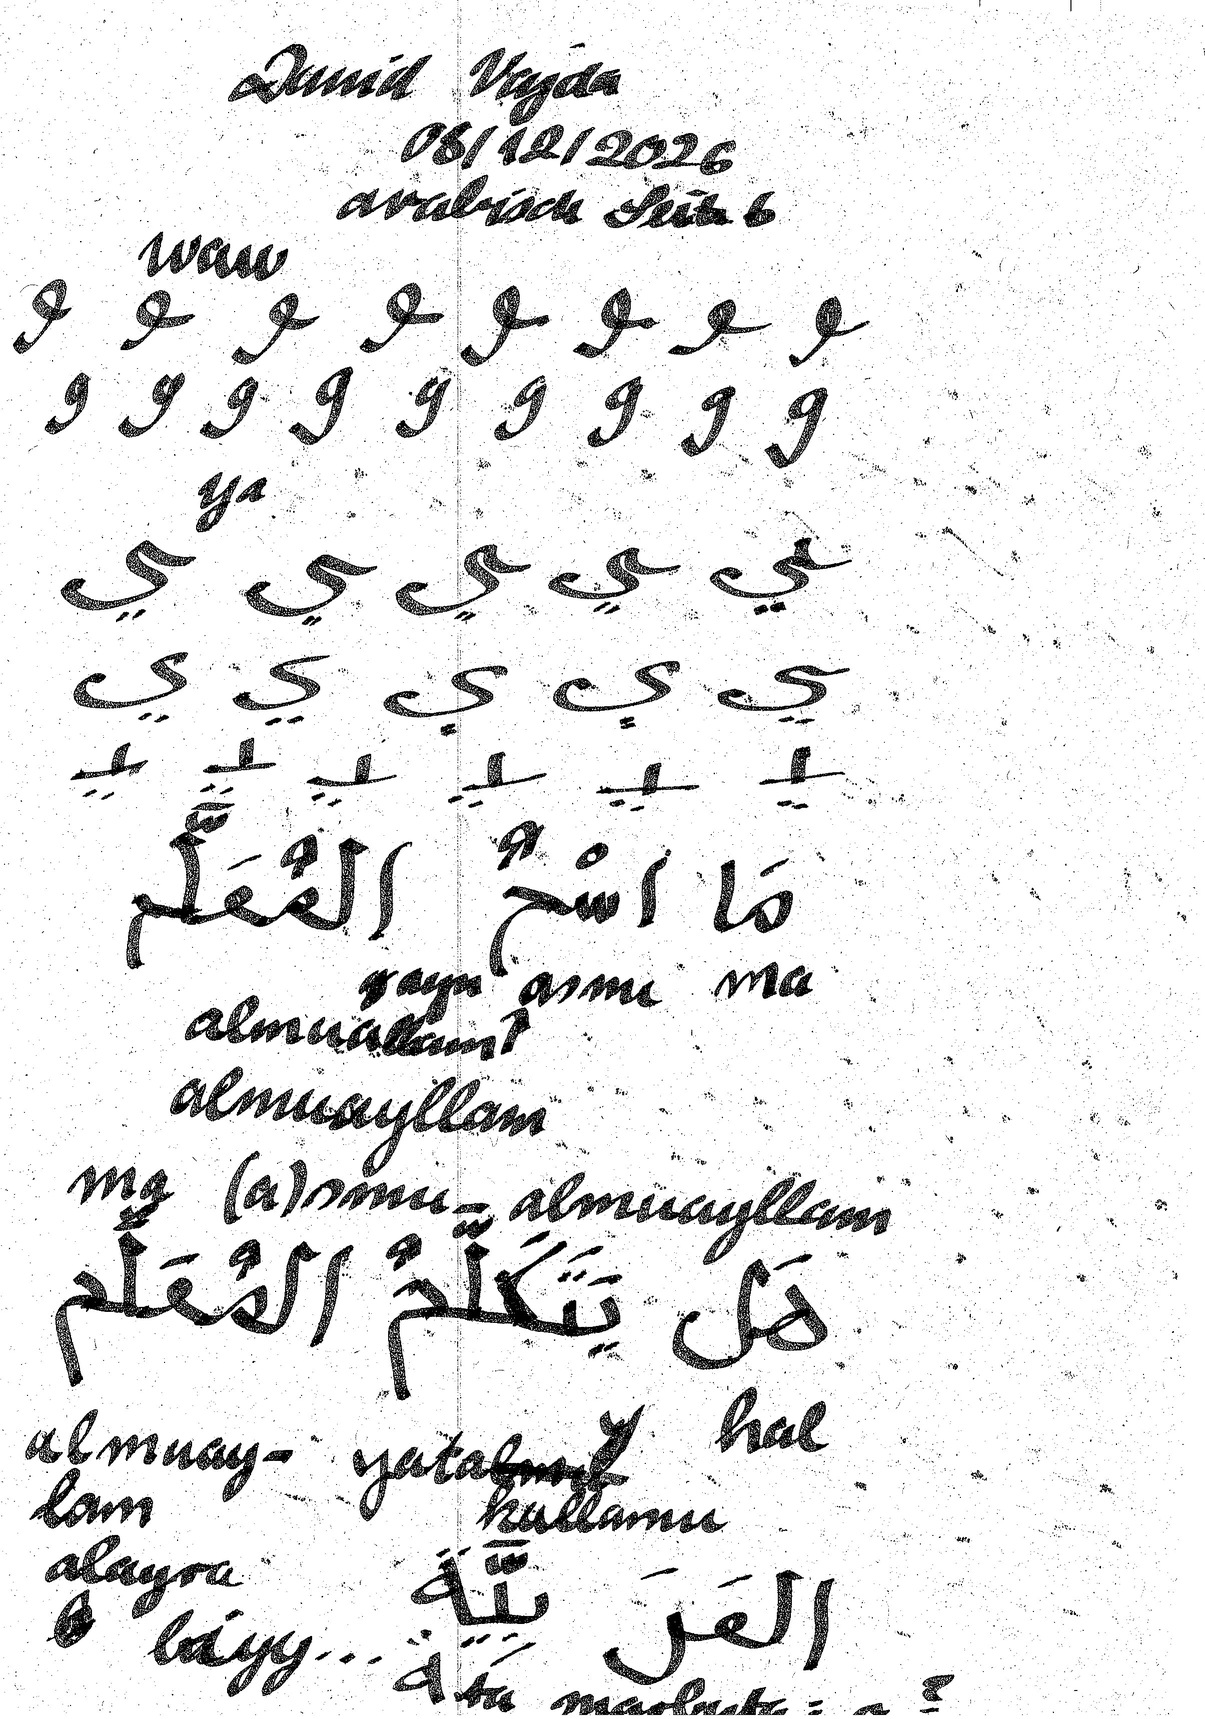 David Vajda
08/12/2026
arabisch Seite 6
waw
و و و و و و و و
و و و و و و و و و
ya
ي ي ي ي ي
ي ي ي ي ي
ـيـ ـيـ ـيـ ـيـ ـيـ ـيـ
مَا اسْمُ المُعَلَّم
ayn asmu ma
almuallam?
almuayllam
ma (a)smu-almuayllam
هَل يَتَكَلَّمُ المُعَلَّم
almuay- yata hal
lam kallamu
alayra
العَرَ بِيَّة
bayy...
ة ta marbuta = a ?